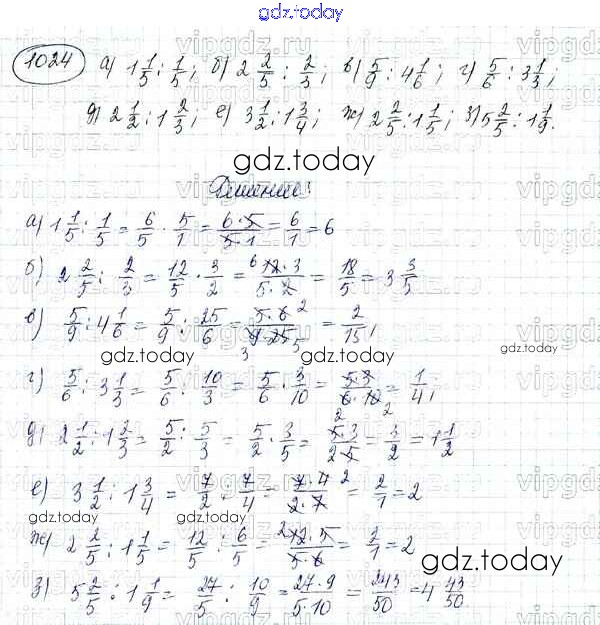 gdz.today
1024 а) 1 1/5 : 1/5; б) 2 2/5 : 2/3; в) 5/9 : 4 1/6; г) 5/6 : 3 1/3;
д) 2 1/2 : 1 2/3; е) 3 1/2 : 1 3/4; ж) 2 2/5 : 1 1/5; з) 5 2/5 : 1 1/9.
gdz.today
Решение:
а) 1 1/5 : 1/5 = 6/5 · 5/1 = 6·5/5·1 = 6/1 = 6
б) 2 2/5 : 2/3 = 12/5 · 3/2 = 6 12·3/5·2 = 18/5 = 3 3/5
в) 5/9 : 4 1/6 = 5/9 : 25/6 = 5·6 2/3 9·25 5 = 2/15;
gdz.today gdz.today
г) 5/6 : 3 1/3 = 5/6 : 10/3 = 5/6 · 3/10 = 5·3/2 6·10 2 = 1/4;
д) 2 1/2 : 1 2/3 = 5/2 : 5/3 = 5/2 · 3/5 = 5·3/2·5 = 3/2 = 1 1/2
е) 3 1/2 : 1 3/4 = 7/2 : 7/4 = 7·4 2/2·7 = 2/1 = 2
gdz.today gdz.today
ж) 2 2/5 : 1 1/5 = 12/5 : 6/5 = 2 12·5/5·6 = 2/1 = 2
gdz.today
з) 5 2/5 : 1 1/9 = 27/5 : 10/9 = 27·9/5·10 = 243/50 = 4 43/50.